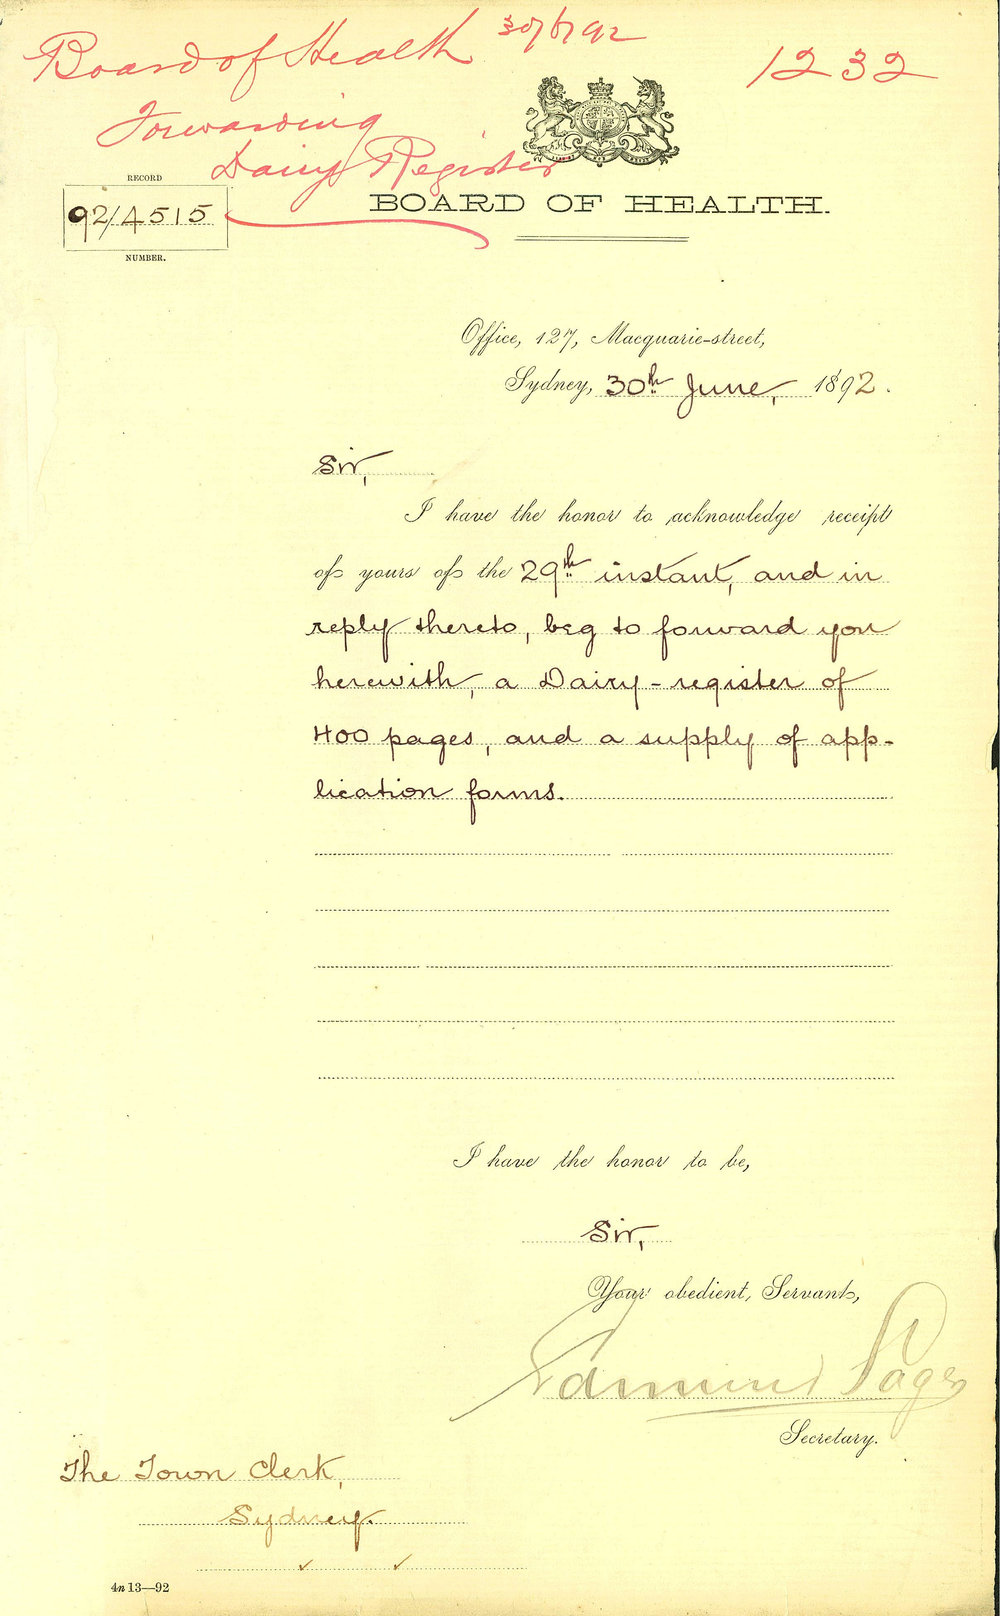 Board of Health 30/6/92
1232
Forwarding
Dairy Register
RECORD
92/4515
NUMBER.
BOARD OF HEALTH.
Office, 127, Macquarie-street,
Sydney, 30th June, 1892.
Sir,
I have the honor to acknowledge receipt
of yours of the 29th instant, and in
reply thereto, beg to forward you
herewith, a Dairy-register of
400 pages, and a supply of app-
lication forms.
I have the honor to be,
Sir,
Your obedient Servant,
Edmund Sager
Secretary.
The Town Clerk,
Sydney.
4n 13—92